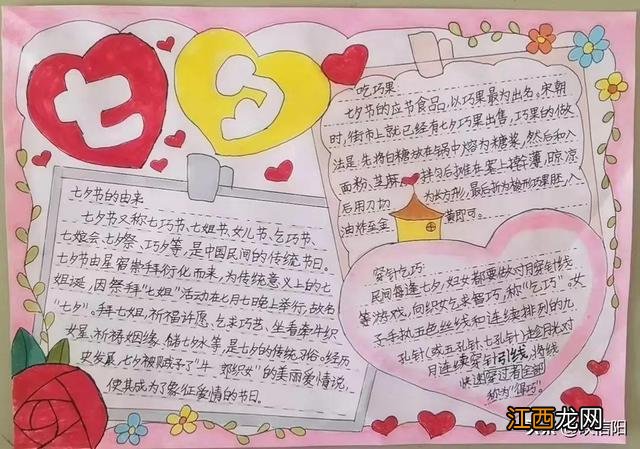 七夕
七夕节的由来
七夕节又称七巧节、七姐节、女儿节、乞巧节、
七娘会、七夕祭、巧夕等，是中国民间的传统节日。
七夕节由星宿崇拜衍化而来，为传统意义上的七
姐诞，因祭拜"七姐"活动在七月七晚上举行，故名
"七夕"。拜七姐，祈福许愿、乞求巧艺、坐看牵牛织
女星、祈祷姻缘、储七水等，是七夕的传统习俗。经历
史发展，七夕被赋予了"牛郎织女"的美丽爱情说，
使其成为了象征爱情的节日。
吃巧果
七夕节的应节食品，以巧果最为出名。宋朝
时，街市上就已经有七夕巧果出售，巧果的做
法是：先将白糖放在锅中熔为糖浆，然后和入
面粉、芝麻，拌匀后摊在案上擀薄，晾凉
后用刀切为长方形，最后折为梭形巧果胚，入
油炸至金黄即可。
穿针乞巧
民间每逢七夕，妇女都要做对月穿针引线
等游戏，向织女乞求智巧，称"乞巧"。女
子手执五色丝线和连续排列的九
孔针(或五孔针、七孔针)趁月光对
月连续穿针引线，将线
快速穿过者全部
称为"得巧"。
江西龙网
信阳